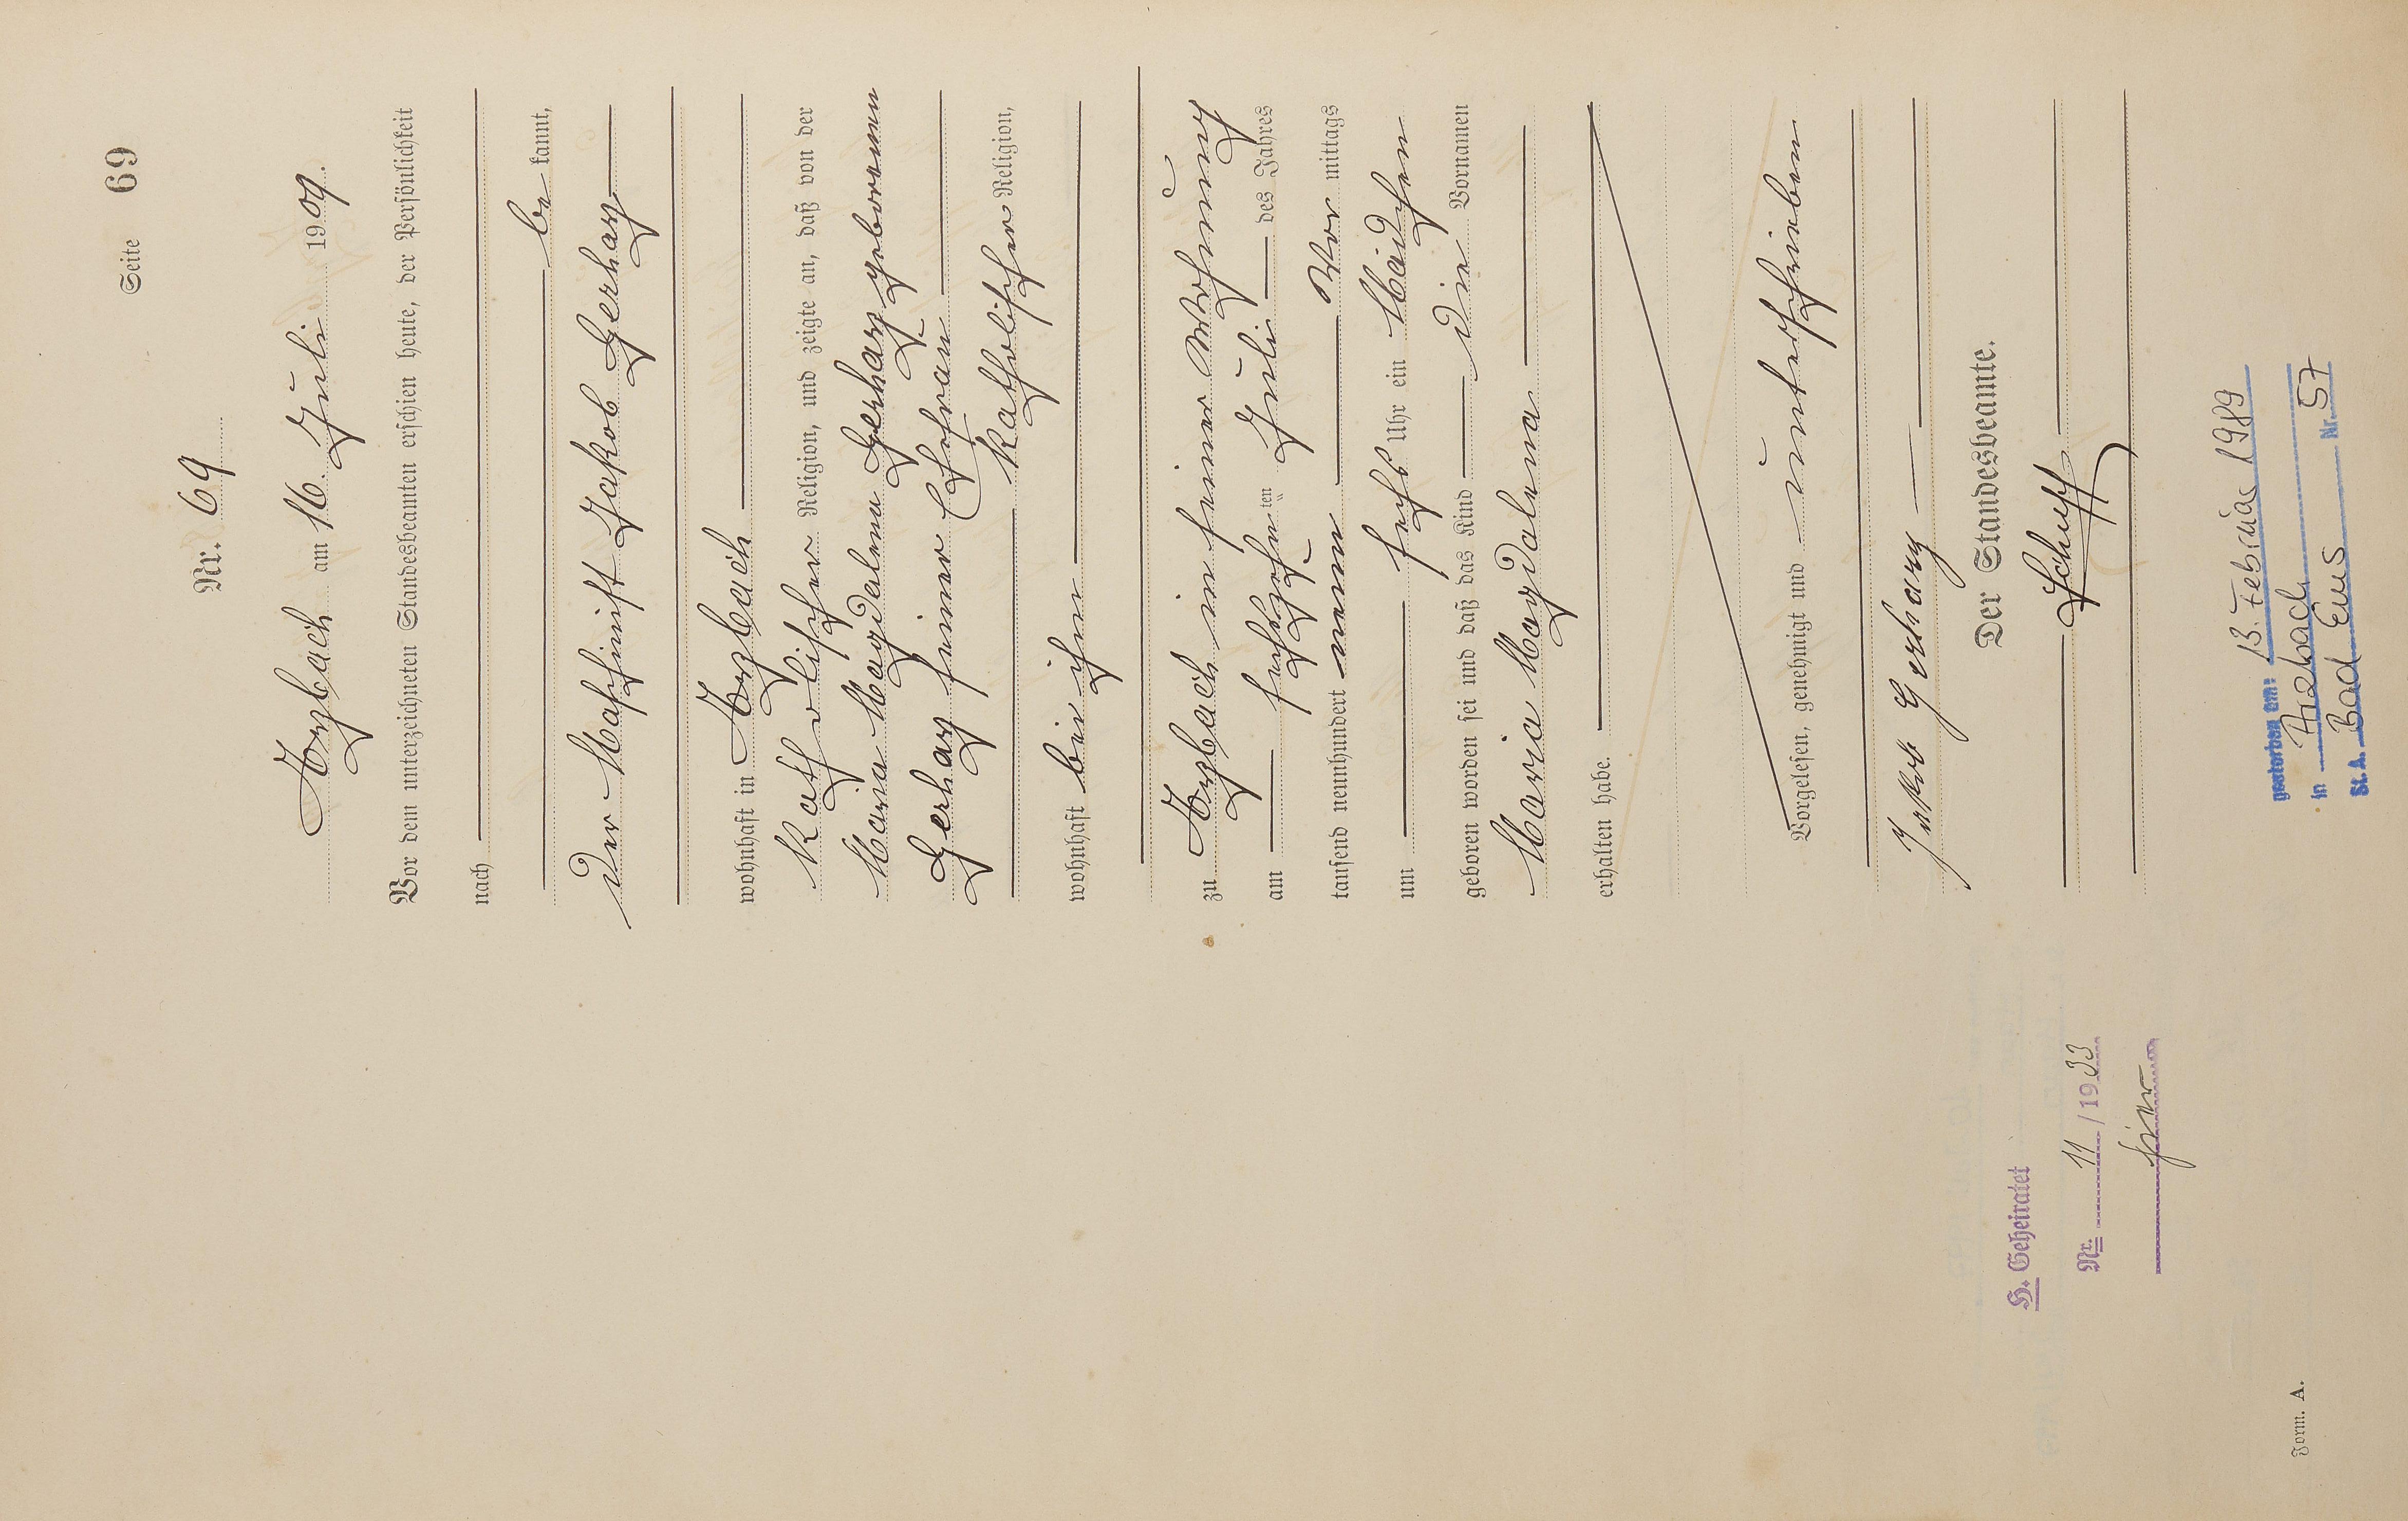 Seite 69
Nr. 69
Arzbach am 16. Juli 1909.
Vor dem unterzeichneten Standesbeamten erschien heute, der Persönlichkeit
nach
bekannt,
der Maschinist Jakob Gerharz
wohnhaft in Arzbach
katholischer Religion, und zeigte an, daß von der
Maria Magdalena Gerharz geborenen
Gerharz seiner Ehefrau
katholischer Religion,
wohnhaft bei ihm
zu Arzbach in seiner Wohnung
am sechszehnten Juli des Jahres
tausend neunhundert neun Vor mittags
um sechs Uhr ein Mädchen
geboren worden sei und daß das Kind die Vornamen
Maria Magdalena
erhalten habe.
Vorgelesen, genehmigt und unterschrieben
Jakob Gerharz
Der Standesbeamte.
Schupp
H. Geheiratet
Nr. 11/1933
hier
gestorben am: 13. Februar 1989
in Arzbach
St. A. Bad Ems Nr. 57
Form. A.